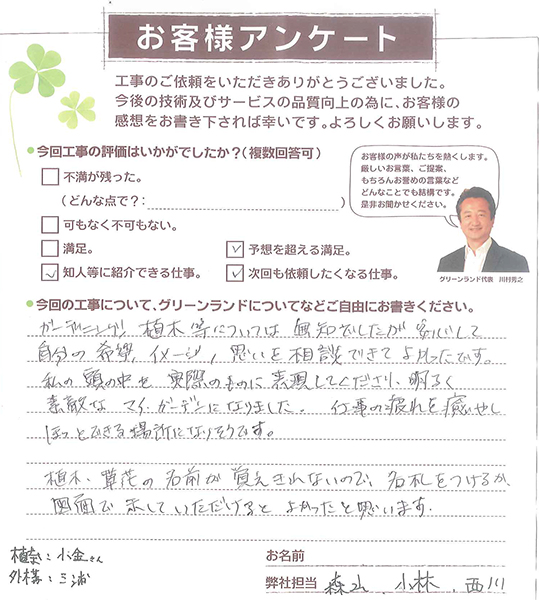 お客様アンケート
工事のご依頼をいただきありがとうございました。
今後の技術及びサービスの品質向上の為に、お客様の
感想をお書き下されば幸いです。よろしくお願いします。
●今回工事の評価はいかがでしたか？（複数回答可）
□不満が残った。
（どんな点で？：　　　　　）
□可もなく不可もない。
□満足。　☑予想を超える満足。
☑知人等に紹介できる仕事。　☑次回も依頼したくなる仕事。
お客様の声が私たちを熱くします。
厳しいお言葉、ご提案、
もちろんお誉めの言葉など
どんなことでも結構です。
是非お聞かせください。
グリーンランド代表　川村芳之
●今回の工事について、グリーンランドについてなどご自由にお書きください。
ガーデニング、植木等については無知でしたが安心して
自分の希望、イメージ、思いを相談できてよかったです。
私の頭の中を実際のものに表現してくださり、明るく
素敵なマイ・ガーデンになりました。仕事の疲れを癒やし
ほっとできる場所になりそうです。
植木・草花の名前が覚えきれないので、名札をつけるか、
図面で示していただけると よかったと思います。
植栽：小金さん
外構：三浦
お名前
弊社担当　森山、小林、西川